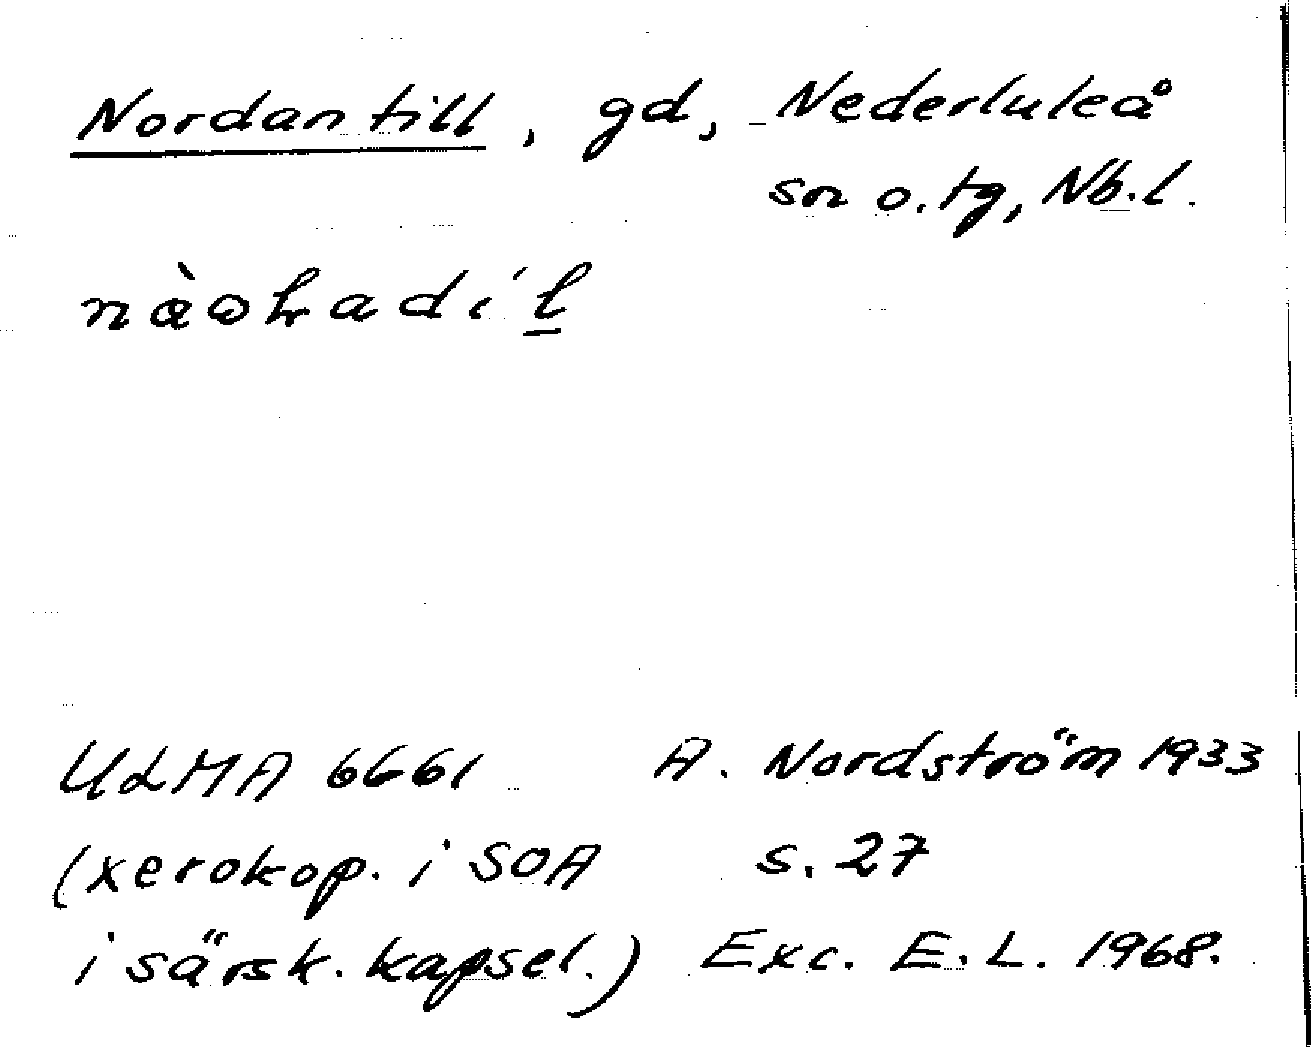 Nordantill, gd, Nederluleå
sn o. tg, Nb.l.
ULMA 6661 A. Nordström 1933
(xerokop. i SOA s. 27
i särsk. kapsel.) Exc. E.L. 1968.